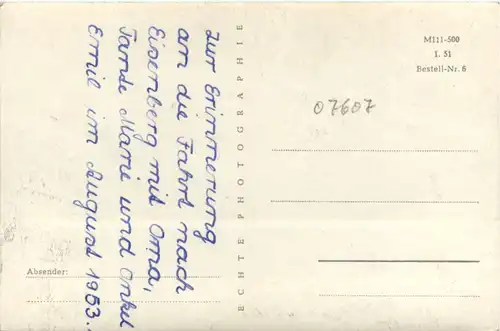 Zur Erinnerung
an die Fahrt nach
Eisenberg mit Oma,
Tante Marie und Onkel
Emil im August 1953.
Absender:
ECHTE PHOTOGRAPHIE
M111-500
1. 51
Bestell-Nr. 6
07607